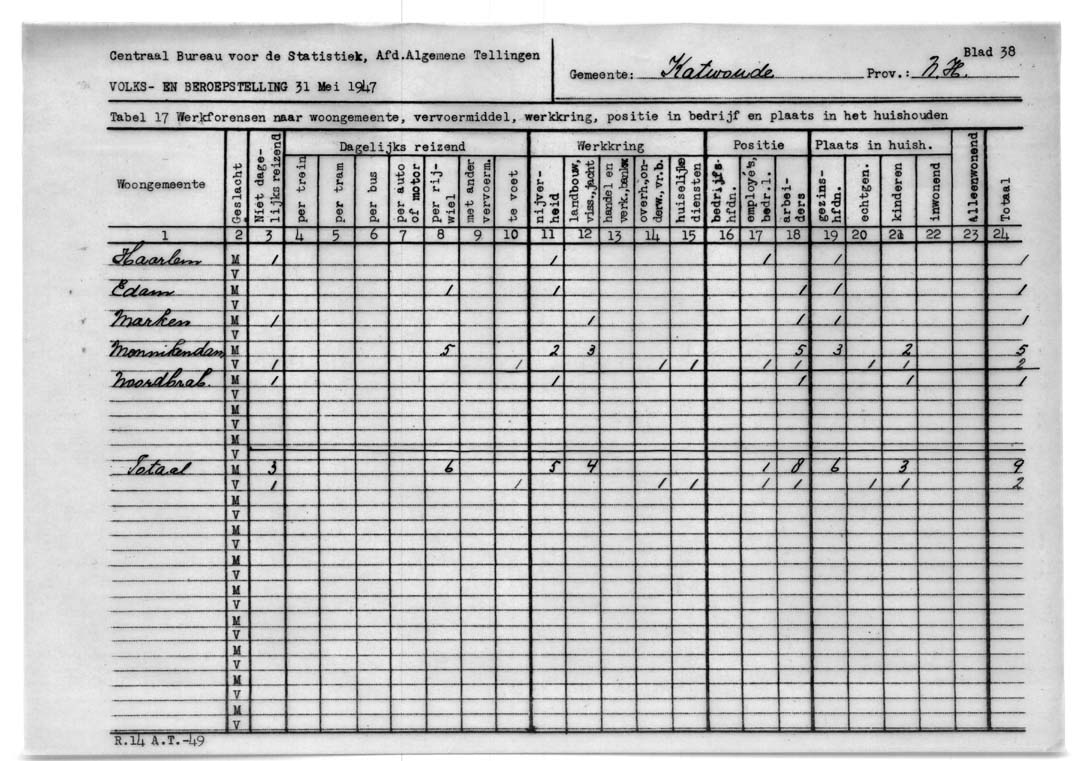 Centraal Bureau voor de Statistiek, Afd.Algemene Tellingen
VOLKS- EN BEROEPSTELLING 31 Mei 1947
Gemeente: Katwoude Prov.: N.H. Blad 38
Tabel 17 Werkforensen naar woongemeente, vervoermiddel, werkkring, positie in bedrijf en plaats in het huishouden
Woongemeente Geslacht Niet dage- lijks reizend Dagelijks reizend Werkkring Positie Plaats in huish. Alleenwonend Totaal
per trein per tram per bus per auto of motor per rij- wiel met ander vervoerm. te voet nijver- heid landbouw, viss.,jacht handel en verk.,bankw overh.,on- derw.,vr.b. huiselijke diensten bedrijfs- hfdn. employé's, bedr.l. arbei- ders gezins- hfdn. echtgen. kinderen inwonend
1 2 3 4 5 6 7 8 9 10 11 12 13 14 15 16 17 18 19 20 21 22 23 24
Haarlem M 1 1 1 1 1
V
Edam M 1 1 1 1 1
V
Marken M 1 1 1 1 1
V
Monnikendam M 5 2 3 5 3 2 5
V 1 1 1 1 1 1 1 1 2
Noordbrab. M 1 1 1 1 1
V
M
V
M
V
Totaal M 3 6 5 4 1 8 6 3 9
V 1 1 1 1 1 1 1 1 2
M
V
M
V
M
V
M
V
M
V
M
V
M
V
M
V
R.14 A.T.-49